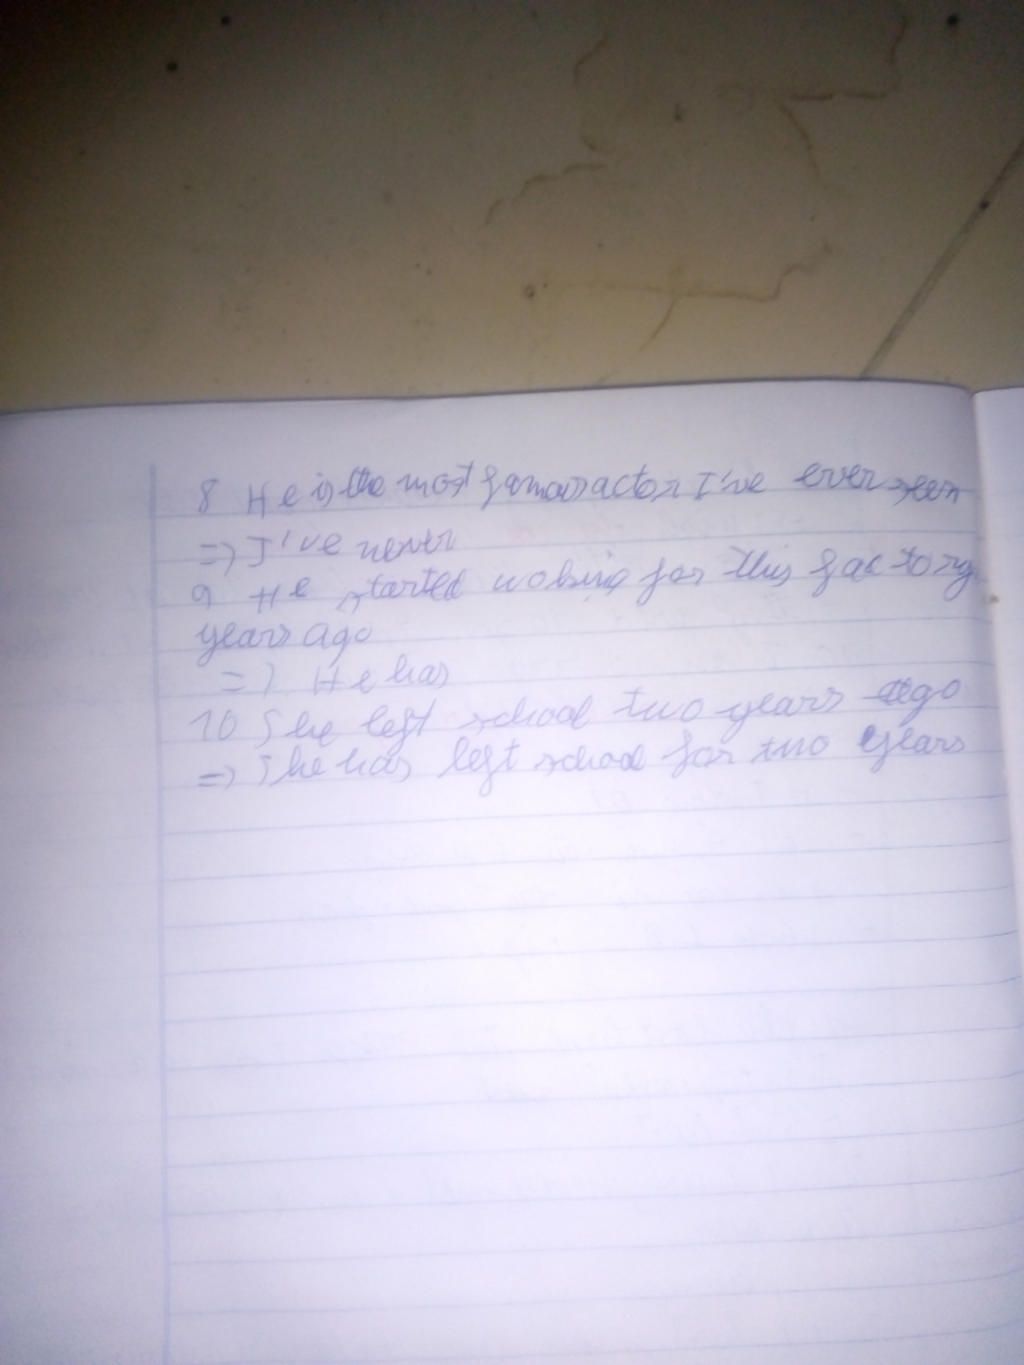 8 He is the most famous actor I've ever seen
=> I've never
9 He started woking for this factory
years ago
=> He has
10 She left school two years ago
=> She has left school for two years